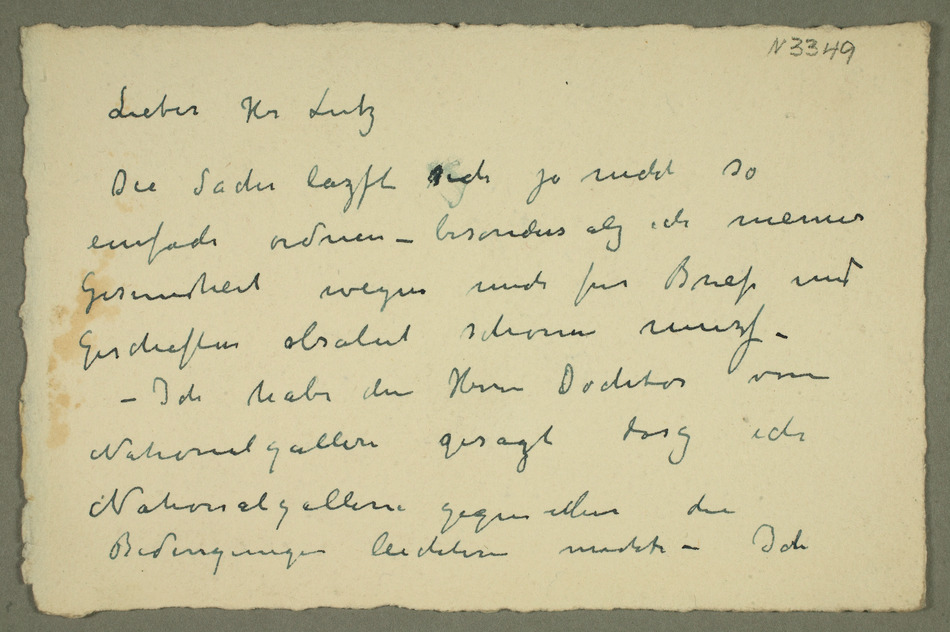 N 3349
Lieber Hr Lutz
Die Sache läszft sich ja nicht so
einfach ordnen – besonders als ich meiner
Gesundheit wegen mich für Brief und
Geschäften absolut schonen muszf –
– Ich habe den Herrn Docktor vom
Nationalgallerie gesagt dasz ich
Nationalgallerie gegenüber die
Bedingungen leichtern machte – Ich